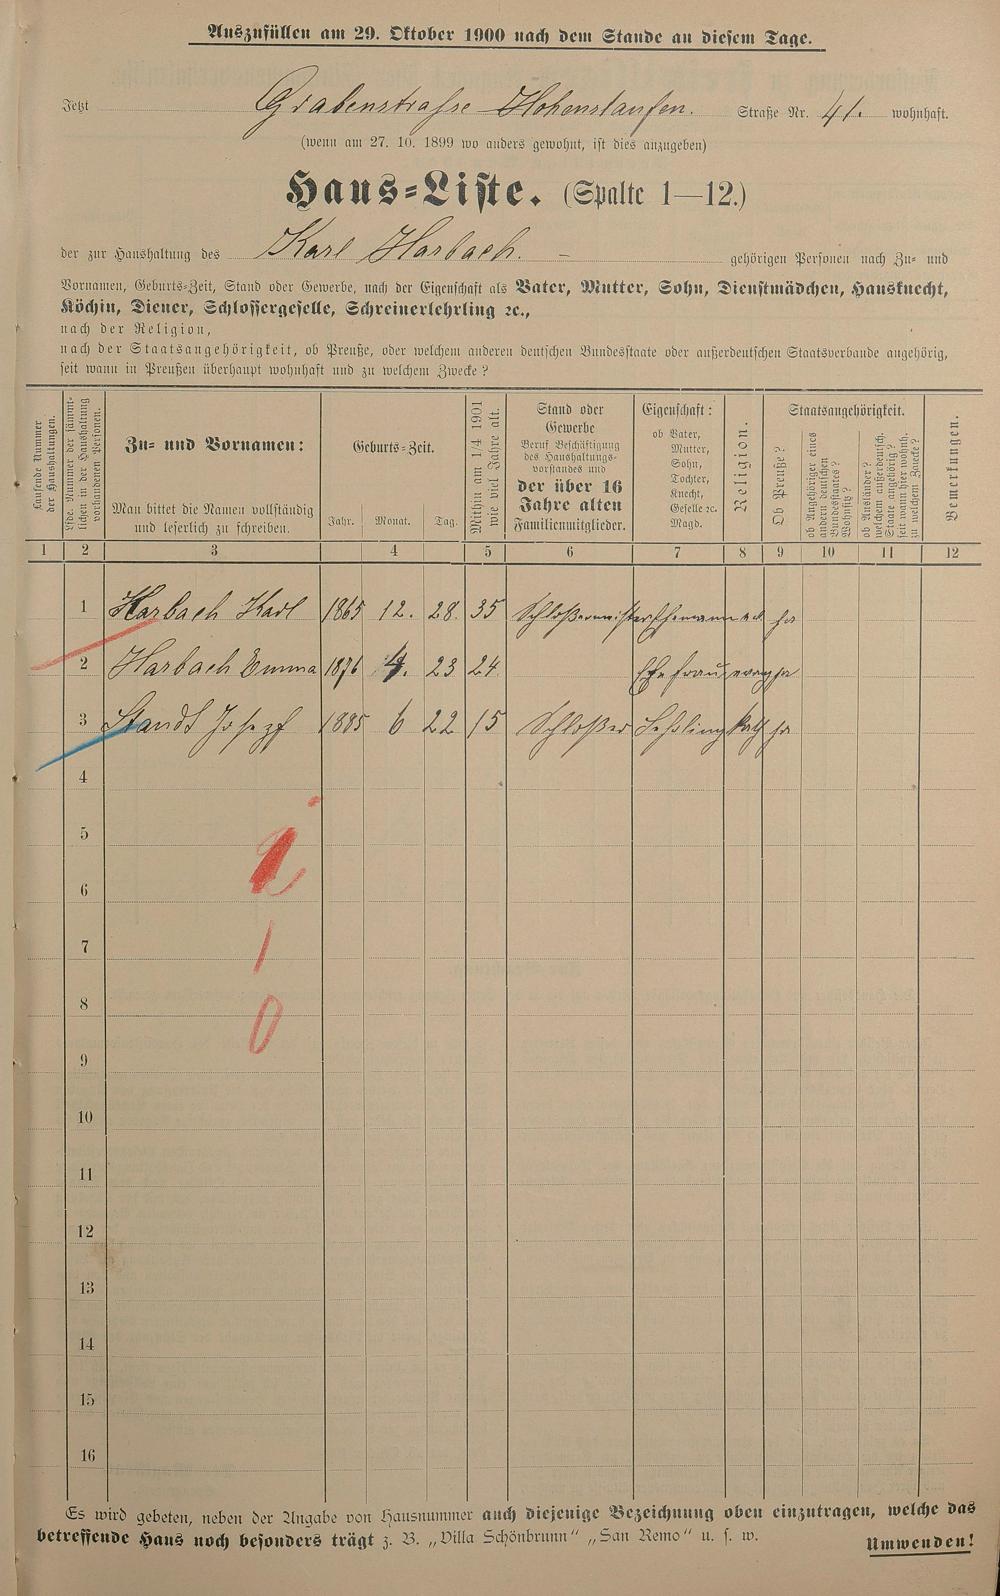 Auszufüllen am 29. Oktober 1900 nach dem Stande an diesem Tage.
Jetzt Grabenstraße Hohenstaufen. Straße Nr. 41. wohnhaft.
(wenn am 27. 10. 1899 wo anders gewohnt, ist dies anzugeben)
Haus=Liste. (Spalte 1—12.)
der zur Haushaltung des Karl Harbach. – gehörigen Personen nach Zu= und
Vornamen, Geburts=Zeit, Stand oder Gewerbe, nach der Eigenschaft als Vater, Mutter, Sohn, Dienstmädchen, Hausknecht,
Köchin, Diener, Schlossergeselle, Schreinerlehrling ꝛc.,
nach der Religion,
nach der Staatsangehörigkeit, ob Preuße, oder welchem anderen deutschen Bundesstaate oder außerdeutschen Staatsverbande angehörig,
seit wann in Preußen überhaupt wohnhaft und zu welchem Zwecke?
Laufende Nummer
der Haushaltungen.
Lfde. Nummer der sämmt-
lichen in der Haushaltung
vorhandenen Personen.
Zu= und Vornamen:
Man bittet die Namen vollständig
und leserlich zu schreiben.
Geburts=Zeit.
Jahr. Monat. Tag.
Mithin am 1/4 1901
wie viel Jahre alt.
Stand oder
Gewerbe
Beruf Beschäftigung
des Haushaltungs-
vorstandes und
der über 16
Jahre alten
Familienmitglieder.
Eigenschaft:
ob Vater,
Mutter,
Sohn,
Tochter,
Knecht,
Geselle ꝛc.
Magd.
Religion.
Staatsangehörigkeit.
Ob Preuße?
ob Angehöriger eines
andern deutschen
Bundesstaates?
Wohnsitz?
ob Ausländer?
welchem außerdeutsch.
Staate angehörig?
seit wann hier wohnh.
zu welchem Zwecke?
Bemerkungen.
1 2 3 4 5 6 7 8 9 10 11 12
1 Harbach Karl 1865 12. 28. 35 Schloßermeister Ehemann ja
2 Harbach Emma 1876 4. 23 24 Ehefrau evang ja
3 Standt Josepf 1885 6 22 15 Schloßer Lehrling Kath ja
4
5
6
7
8
9
10
11
12
13
14
15
16
1
0
Es wird gebeten, neben der Angabe von Hausnummer auch diejenige Bezeichnung oben einzutragen, welche das
betreffende Haus noch besonders trägt z. B. „Villa Schönbrunn“ „San Remo“ u. s. w.
Umwenden!